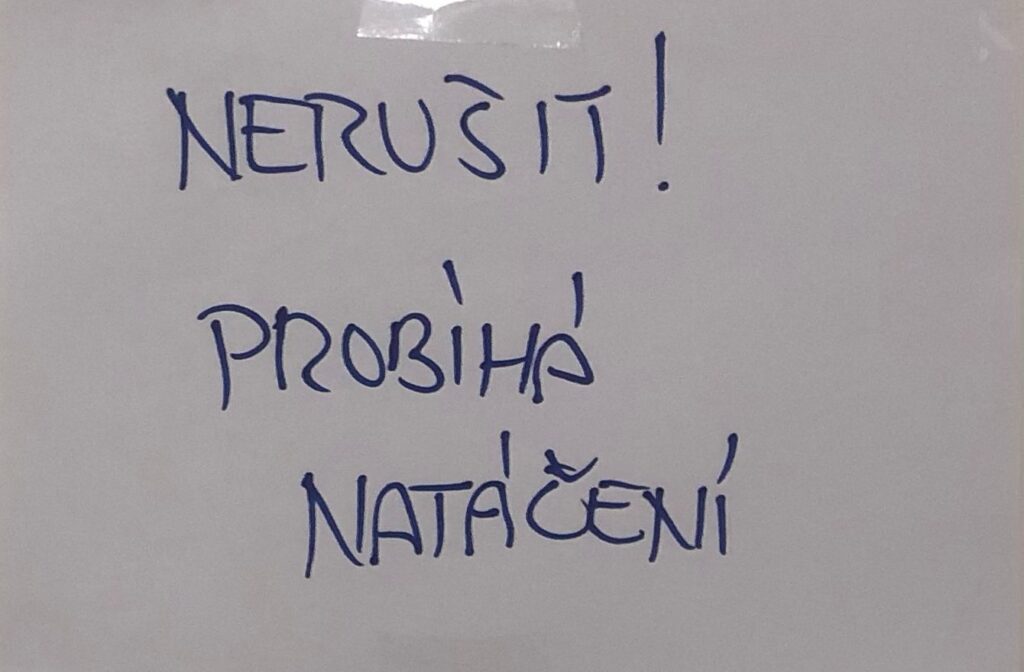 NERUŠIT!
PROBÍHÁ
NATÁČENÍ